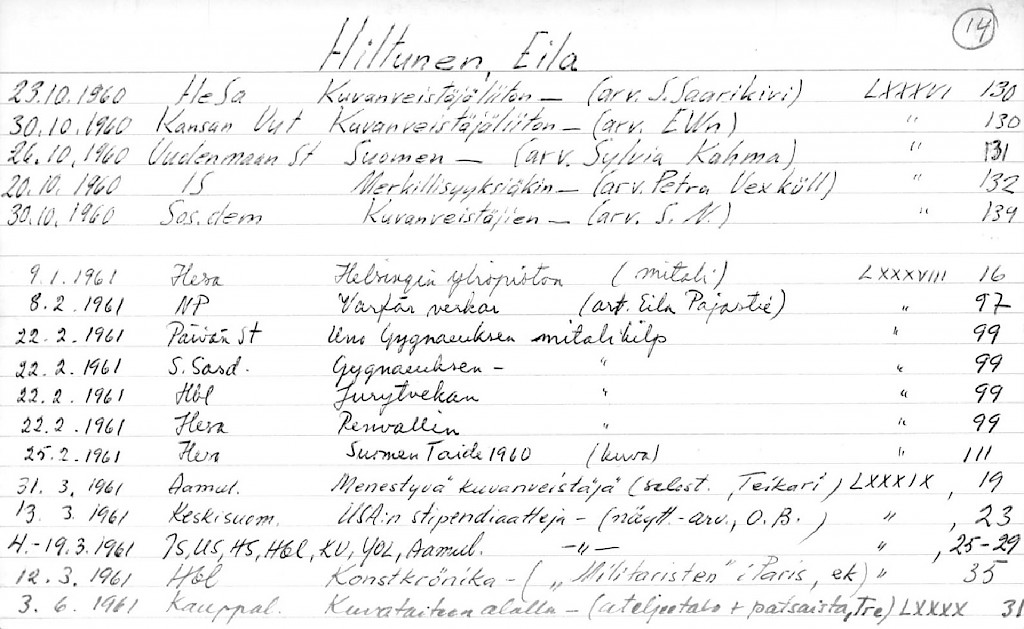 14
Hiltunen, Eila
23.10.1960 HeSa Kuvanveistäjäliiton — (arv. S. Saarikivi) LXXXVI 130
30.10.1960 Kansan Uut Kuvanveistäjäliiton — (arv. EWn) " 130
26.10.1960 Uudenmaan St Suomen — (arv. Sylvia Kahma) " 131
20.10.1960 IS Merkillisyyksiäkin — (arv. Petra Uexküll) " 132
30.10.1960 Sos.dem Kuvanveistäjien — (arv. S. N.) " 134
9.1.1961 Hesa Helsingin yliopiston (mitali) LXXXVIII 16
8.2.1961 NP Varför verkar (art. Eila Pajastie) " 97
22.2.1961 Päivän St Uno Gygnaeuksen mitalikilp " 99
22.2.1961 S. Sosd. Gygnaeuksen — " " 99
22.2.1961 Hbl Jurytvekan " " 99
22.2.1961 Hesa Renvallin " " 99
25.2.1961 Hesa Suomen Taide 1960 (kuva) " 111
31.3.1961 Aamul. Menestyvä kuvanveistäjä (selost. Teikari) LXXXIX, 19
13.3.1961 Keskisuom. USA:n stipendiaatteja — (näytt.-arv., O.B.) " , 23
4.-19.3.1961 IS, US, HS, Hbl, KU, YOL, Aamul. —"— " , 25-29
12.3.1961 Hbl Konstkrönika — („Militaristen" i Paris, ek) " 35
3.6.1961 Kauppal. Kuvataiteen alalla — (ateljeetalo + patsaista, Tre) LXXXX 31